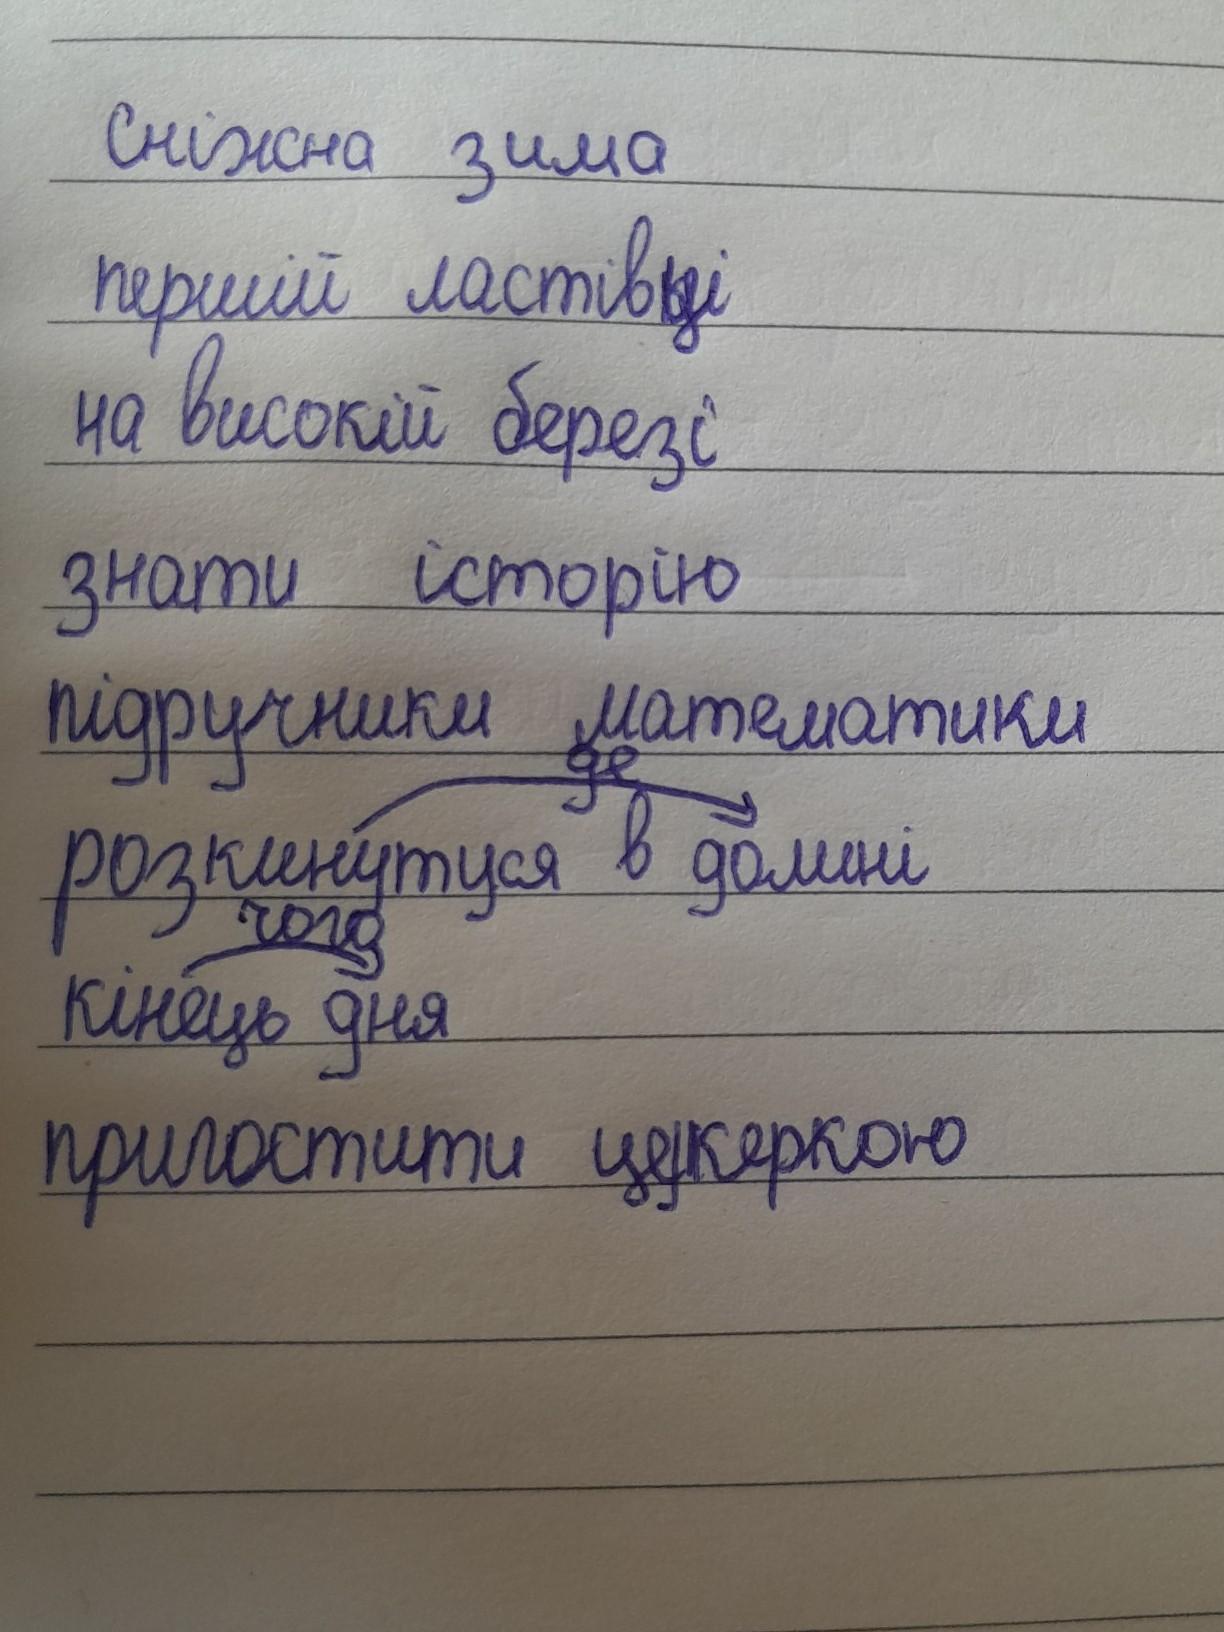 Сніжна зима
першій ластівці
на високій березі
знати історію
підручники математики
де
розкинутуся в долині
чого
кінець дня
пригостити цукеркою